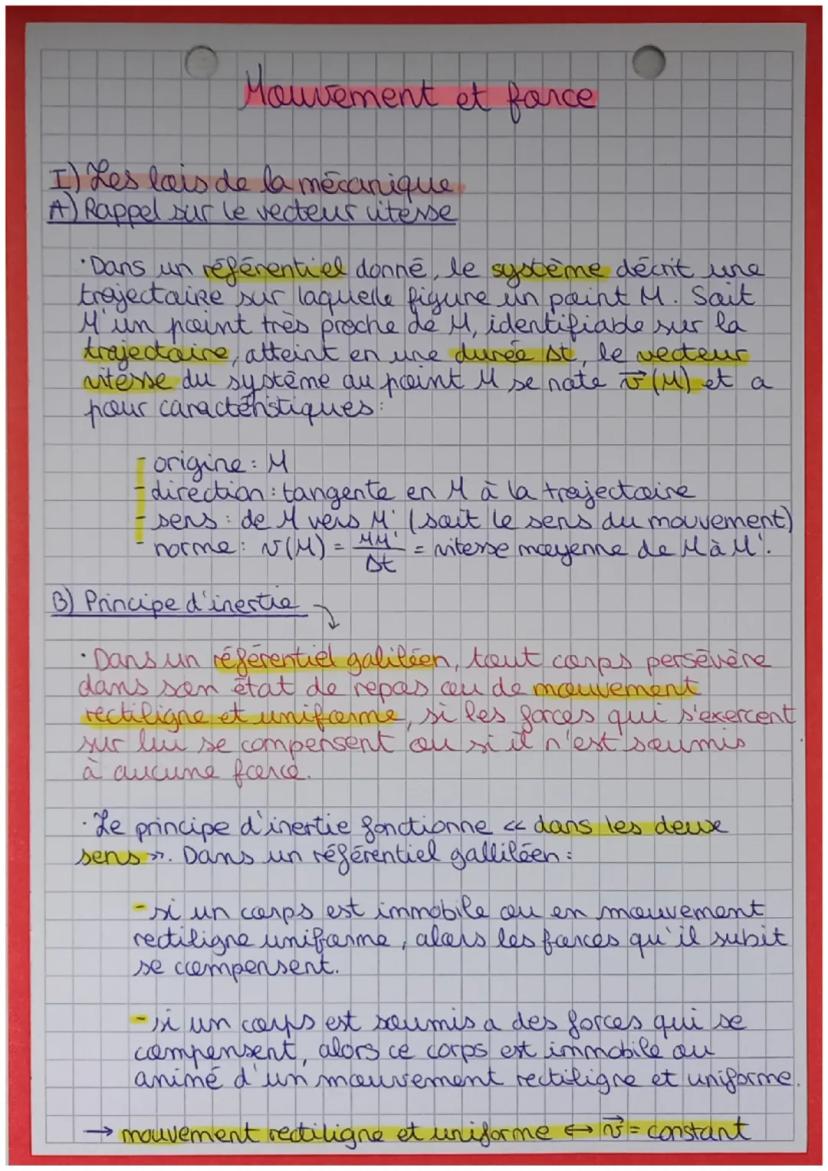 Mouvement et force
I) Les lois de la mécanique
A) Rappel sur le vecteur vitesse
· Dans un référentiel donné, le système décrit une
trajectoire sur laquelle figure un point M. Soit
M' un point très proche de M, identifiable sur la
trajectoire, atteint en une durée Δt, le vecteur
vitesse du système au point M se note v⃗(M) et a
pour caractéristiques :
- origine : M
- direction : tangente en M à la trajectoire
- sens : de M vers M' (soit le sens du mouvement)
- norme : v(M) = MM'/Δt = vitesse moyenne de M à M'.
B) Principe d'inertie
· Dans un référentiel galiléen, tout corps persévère
dans son état de repos ou de mouvement
rectiligne et uniforme, si les forces qui s'exercent
sur lui se compensent ou si il n'est soumis
à aucune force.
· Le principe d'inertie fonctionne « dans les deux
sens ». Dans un référentiel galliléen :
- si un corps est immobile ou en mouvement
rectiligne uniforme, alors les forces qu'il subit
se compensent.
- si un corps est soumis a des forces qui se
compensent, alors ce corps est immobile ou
animé d'un mouvement rectiligne et uniforme.
→ mouvement rectiligne et uniforme ⇔ v⃗ = constant